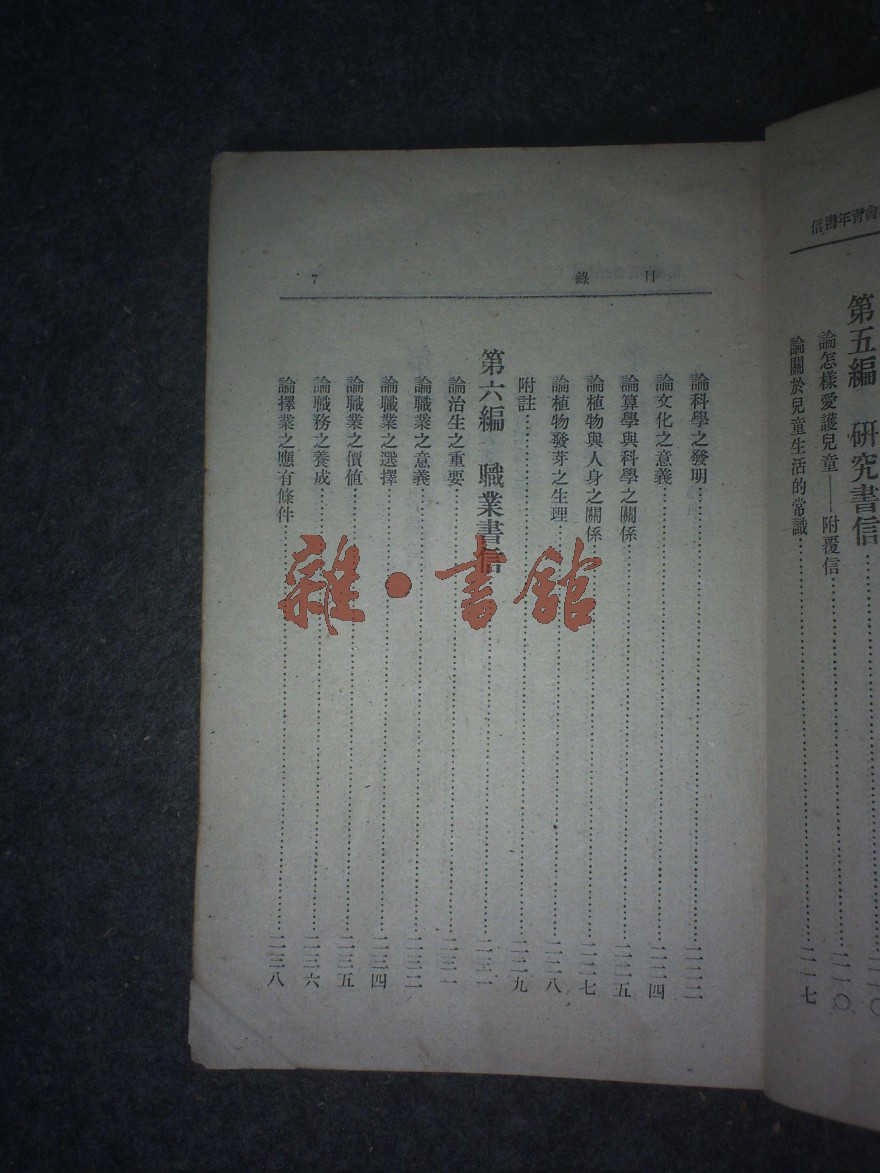 第五編 研究書信……二一〇
論怎樣愛護兒童——附覆信……二一〇
論關於兒童生活的常識……二一七
目錄 7
論科學之發明……二二二
論文化之意義……二二四
論算學與科學之關係……二二五
論植物與人身之關係……二二七
論植物發芽之生理……二二八
附註……二二九
第六編 職業書信……二三一
論治生之重要……二三一
論職業之意義……二三二
論職業之選擇……二三四
論職業之價值……二三五
論職務之養成……二三六
論擇業之應有條件……二三八
雜·書館